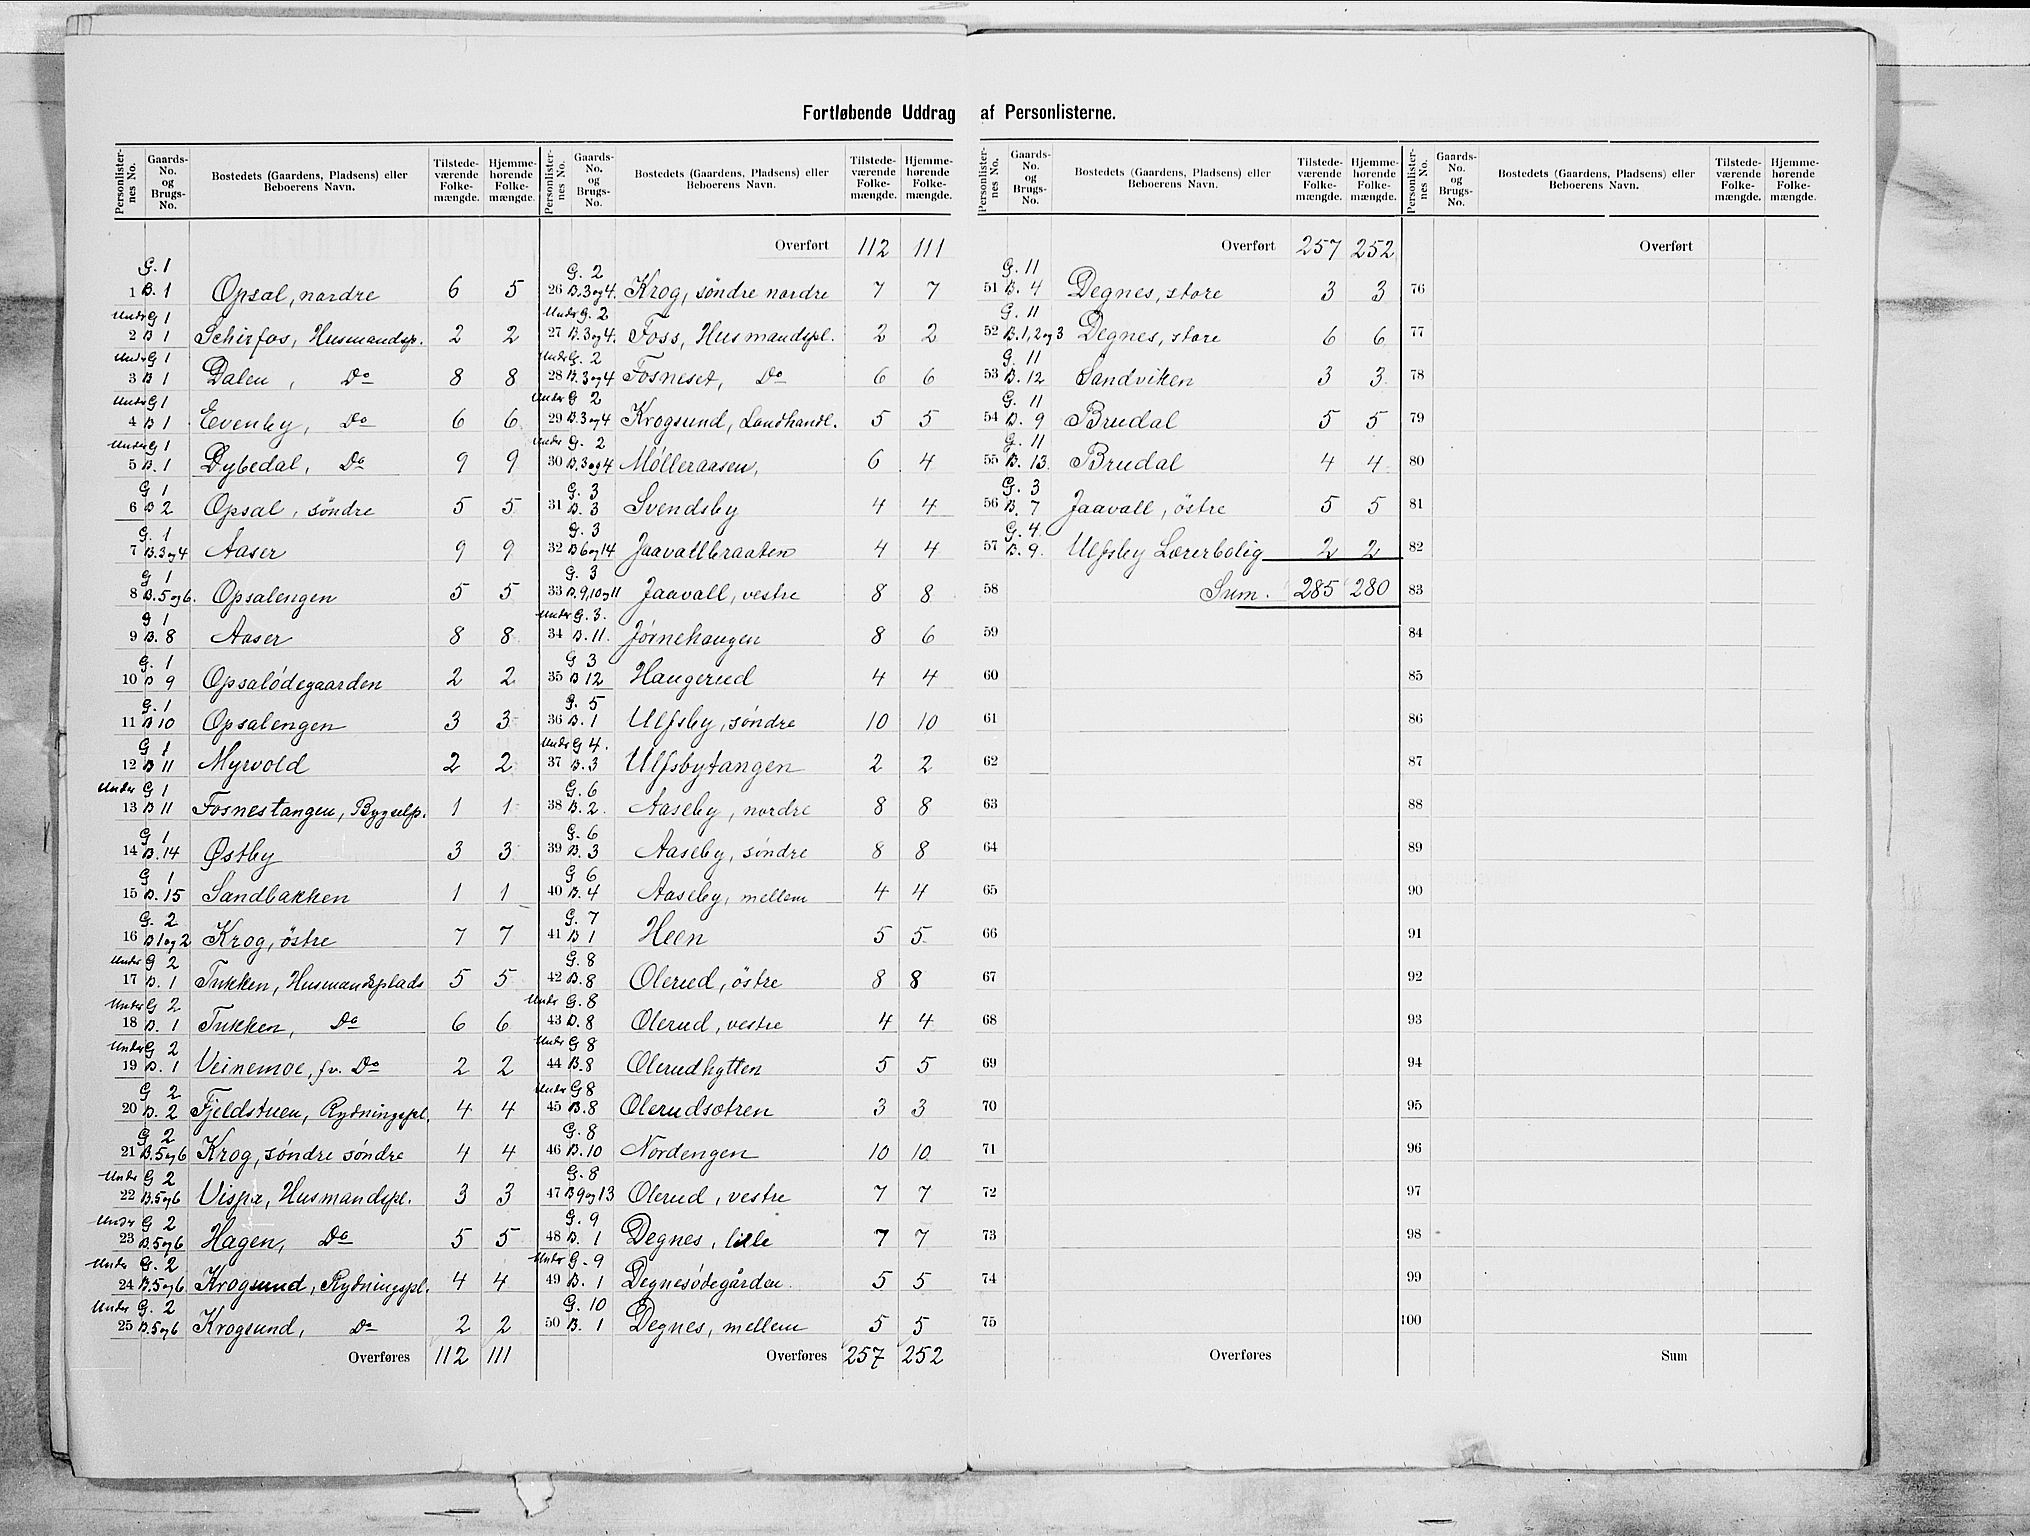 Fortløbende Uddrag af Personlisterne.
Personlister-nes No. Gaards-No. og Brugs-No. Bostedets (Gaardens, Pladsens) eller Beboerens Navn. Tilstede-værende Folke-mængde. Hjemme-hørende Folke-mængde.
G. 1
1 B. 1 Opsal, nordre 6 5
Under G 1
2 B 1 Schirfos, Husmandsp. 2 2
Under G 1
3 B 1 Dalen, Do 8 8
Under G 1
4 B 1 Evenby, Do 6 6
Under G 1
5 B. 1 Dybedal, Do 9 9
G 1
6 B 2 Opsal, søndre 5 5
G. 1
7 B. 3 og 4 Aaser 9 9
G 1
8 B. 5 og 6. Opsalengen 5 5
G 1
9 B. 8 Aaser 8 8
G. 1
10 B 9 Opsalödegaarden 2 2
G. 1
11 B 10 Opsalengen 3 3
G 1
12 B 11 Myrvold 2 2
Under G 1
13 B 11 Fosnestangen, Bygselp. 1 1
G 1
14 B. 14 Østby 3 3
G 1
15 B. 15 Sandbakken 1 1
G. 2
16 B 1 og 2 Krog, östre 7 7
Under G 2
17 B. 1 Tukken, Husmandsplads 5 5
Under G 2
18 B. 1 Tukken, Do 6 6
Under G 2
19 B. 1 Veinemoe, fv. Do 2 2
G 2
20 B. 2 Fjeldstuen, Rydningspl. 4 4
G 2
21 B. 5 og 6 Krog, søndre søndre 4 4
Under G 2
22 B. 5 og 6 Vispa, Husmandspl. 3 3
Under G 2
23 B. 5 og 6 Hagen, Do 5 5
Under G. 2
24 B. 5 og 6 Krogsund, Rydningspl. 4 4
Under G. 2
25 B. 5 og 6 Krogsund, Do 2 2
Overføres 112 111
Personlister-nes No. Gaards-No. og Brugs-No. Bostedets (Gaardens, Pladsens) eller Beboerens Navn. Tilstede-værende Folke-mængde. Hjemme-hørende Folke-mængde.
Overført 112 111
G. 2
26 B. 3 og 4. Krog, søndre nordre 7 7
Under G. 2
27 B. 3 og 4. Foss, Husmandspl. 2 2
Under G. 2
28 B. 3 og 4 Fosneset, Do 6 6
Under G 2
29 B. 3 og 4 Krogsund, Landhandl. 5 5
Under G. 2
30 B. 3 og 4 Mølleraasen, 6 4
G. 3
31 B. 3 Svendsby 4 4
G. 3
32 B 6 og 14 Jaavallbraaten 4 4
G. 3
33 B. 9, 10 og 11 Jaavall, vestre 8 8
Under G. 3.
34 B. 11. Jørnehaugen 8 6
G 3
35 B 12 Haugerud 4 4
G. 5
36 B. 1 Ulfsby, søndre 10 10
Under G 4.
37 B. 3 Ulfsbytangen 2 2
G. 6
38 B. 2. Aaseby, nordre 8 8
G. 6
39 B. 3 Aaseby, söndre 8 8
G 6
40 B. 4 Aaseby, mellem 4 4
G. 7
41 B 1 Heen 5 5
G. 8
42 B. 8 Olerud, östre 8 8
Under G. 8
43 B. 8 Olerud, vestre 4 4
Under G 8
44 B. 8 Olerudhytten 5 5
Under G 8
45 B. 8 Olerudsætren 3 3
G. 8
46 B. 10 Nordengen 10 10
G. 8
47 B 9 og 13 Olerud, vestre 7 7
G. 9
48 B. 1 Degnes, lille 7 7
Under G. 9
49 B. 1 Degnesödegården 5 5
G. 10
50 B. 1 Degnes, mellem 5 5
Overføres 257 252
Personlister-nes No. Gaards-No. og Brugs-No. Bostedets (Gaardens, Pladsens) eller Beboerens Navn. Tilstede-værende Folke-mængde. Hjemme-hørende Folke-mængde.
Overført 257 252
G. 11
51 B. 4 Degnes, store 3 3
G. 11
52 B. 1, 2 og 3 Degnes, store 6 6
G. 11
53 B. 12 Sandviken 3 3
G. 11
54 B. 9 Brudal 5 5
G. 11
55 B. 13. Brudal 4 4
G. 3
56 B. 7 Jaavall, östre 5 5
G. 4.
57 B. 9. Ulfsby Lærerbolig 2 2
58 Sum. 285 280
59
60
61
62
63
64
65
66
67
68
69
70
71
72
73
74
75
Overføres
Personlister-nes No. Gaards-No. og Brugs-No. Bostedets (Gaardens, Pladsens) eller Beboerens Navn. Tilstede-værende Folke-mængde. Hjemme-hørende Folke-mængde.
Overført
76
77
78
79
80
81
82
83
84
85
86
87
88
89
90
91
92
93
94
95
96
97
98
99
100
Sum